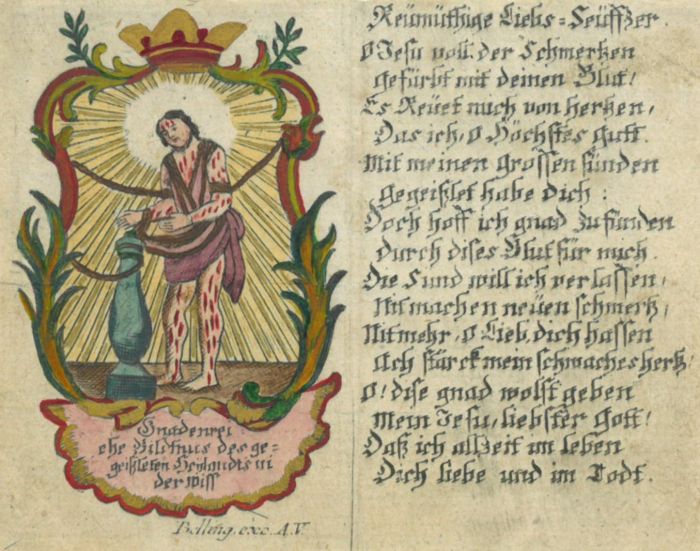 Gnadenrei
che Bildtnus des ge-
geißleten Heylandts in
der Wiss
Belling. exc. A.V.
Reümüthige Liebs=Seüffzer.
O Jesu voll der Schmertzen
gefürbt mit deinen Blut!
Es Reüet mich von hertzen,
Das ich, O Höchstes gutt.
Mit meinen grossen sünden
gegeißlet habe dich:
Doch hoff ich gnad zu finden
durch dises Blut für mich.
Die Sund will ich verlassen,
Nit machen neüen schmertz,
Nit mehr, O Lieb, dich hassen
Ach stärck mein schwaches hertz,
O! dise gnad wolst geben
Mein Jesu, liebster Gott!
Daß ich allzeit im leben
Dich liebe und im Todt.